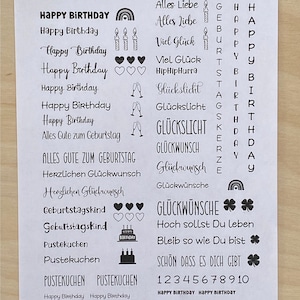 HAPPY BIRTHDAY
Happy Birthday
Happy Birthday
Happy Birthday
Happy Birthday
Happy Birthday
Happy Birthday
Alles Gute zum Geburtstag
ALLES GUTE ZUM GEBURTSTAG
Herzlichen Glückwunsch
Herzlichen Glückwunsch
Geburtstagskind
Geburtstagskind
Pustekuchen
Pustekuchen
PUSTEKUCHEN PUSTEKUCHEN
Happy Birthday Happy Birthday
Alles Liebe
Alles Liebe
Viel Glück
Viel Glück
HipHipHurra
Glückslicht
Glückslicht
GLÜCKSLICHT
GLÜCKWUNSCH
Glückwunsch
Glückwünsche
GLÜCKWÜNSCHE
Hoch sollst Du leben
Bleib so wie Du bist
SCHÖN DASS ES DICH GIBT
1 2 3 4 5 6 7 8 9 10
HAPPY BIRTHDAY HAPPY BIRTHDAY
GEBURTSTAGSKERZE
HAPPY BIRTHDAY
HAPPY BIRTHDAY